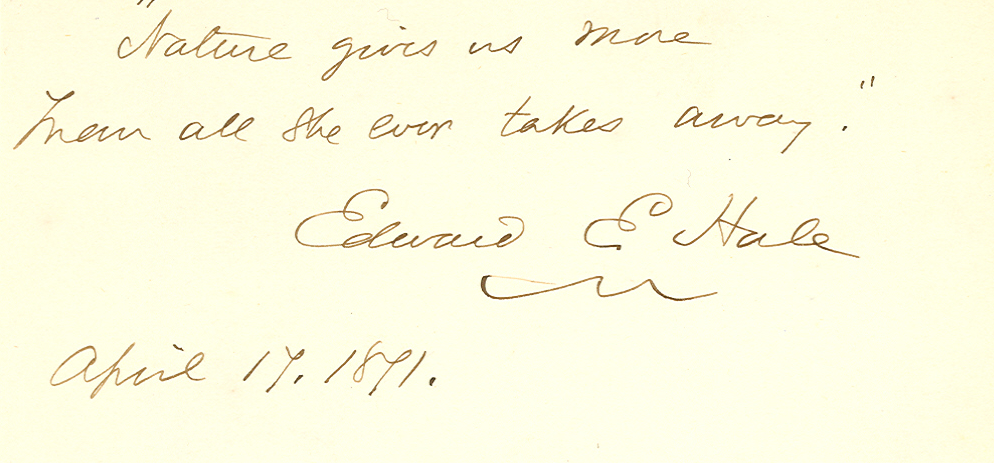 "Nature gives us more
than all she ever takes away."
Edward E Hale
April 17. 1871.